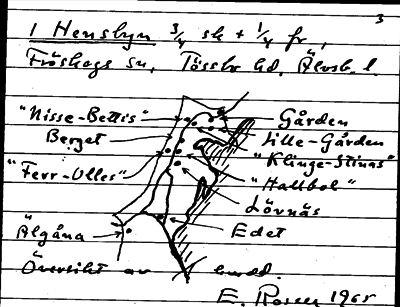 3
1 Hensbyn 3/4 sk + 1/4 fr,
Fröskogs sn, Tössbo hd, Älvsb. l.
"Nisse-Bettis"
Gården
Berget
Lille-Gården
"Klinge-Stinas"
"Ferr-Olles"
"Hallbol"
Lövnäs
Älgåna
Edet
Översikt av hemd.
E. Rosén 1965